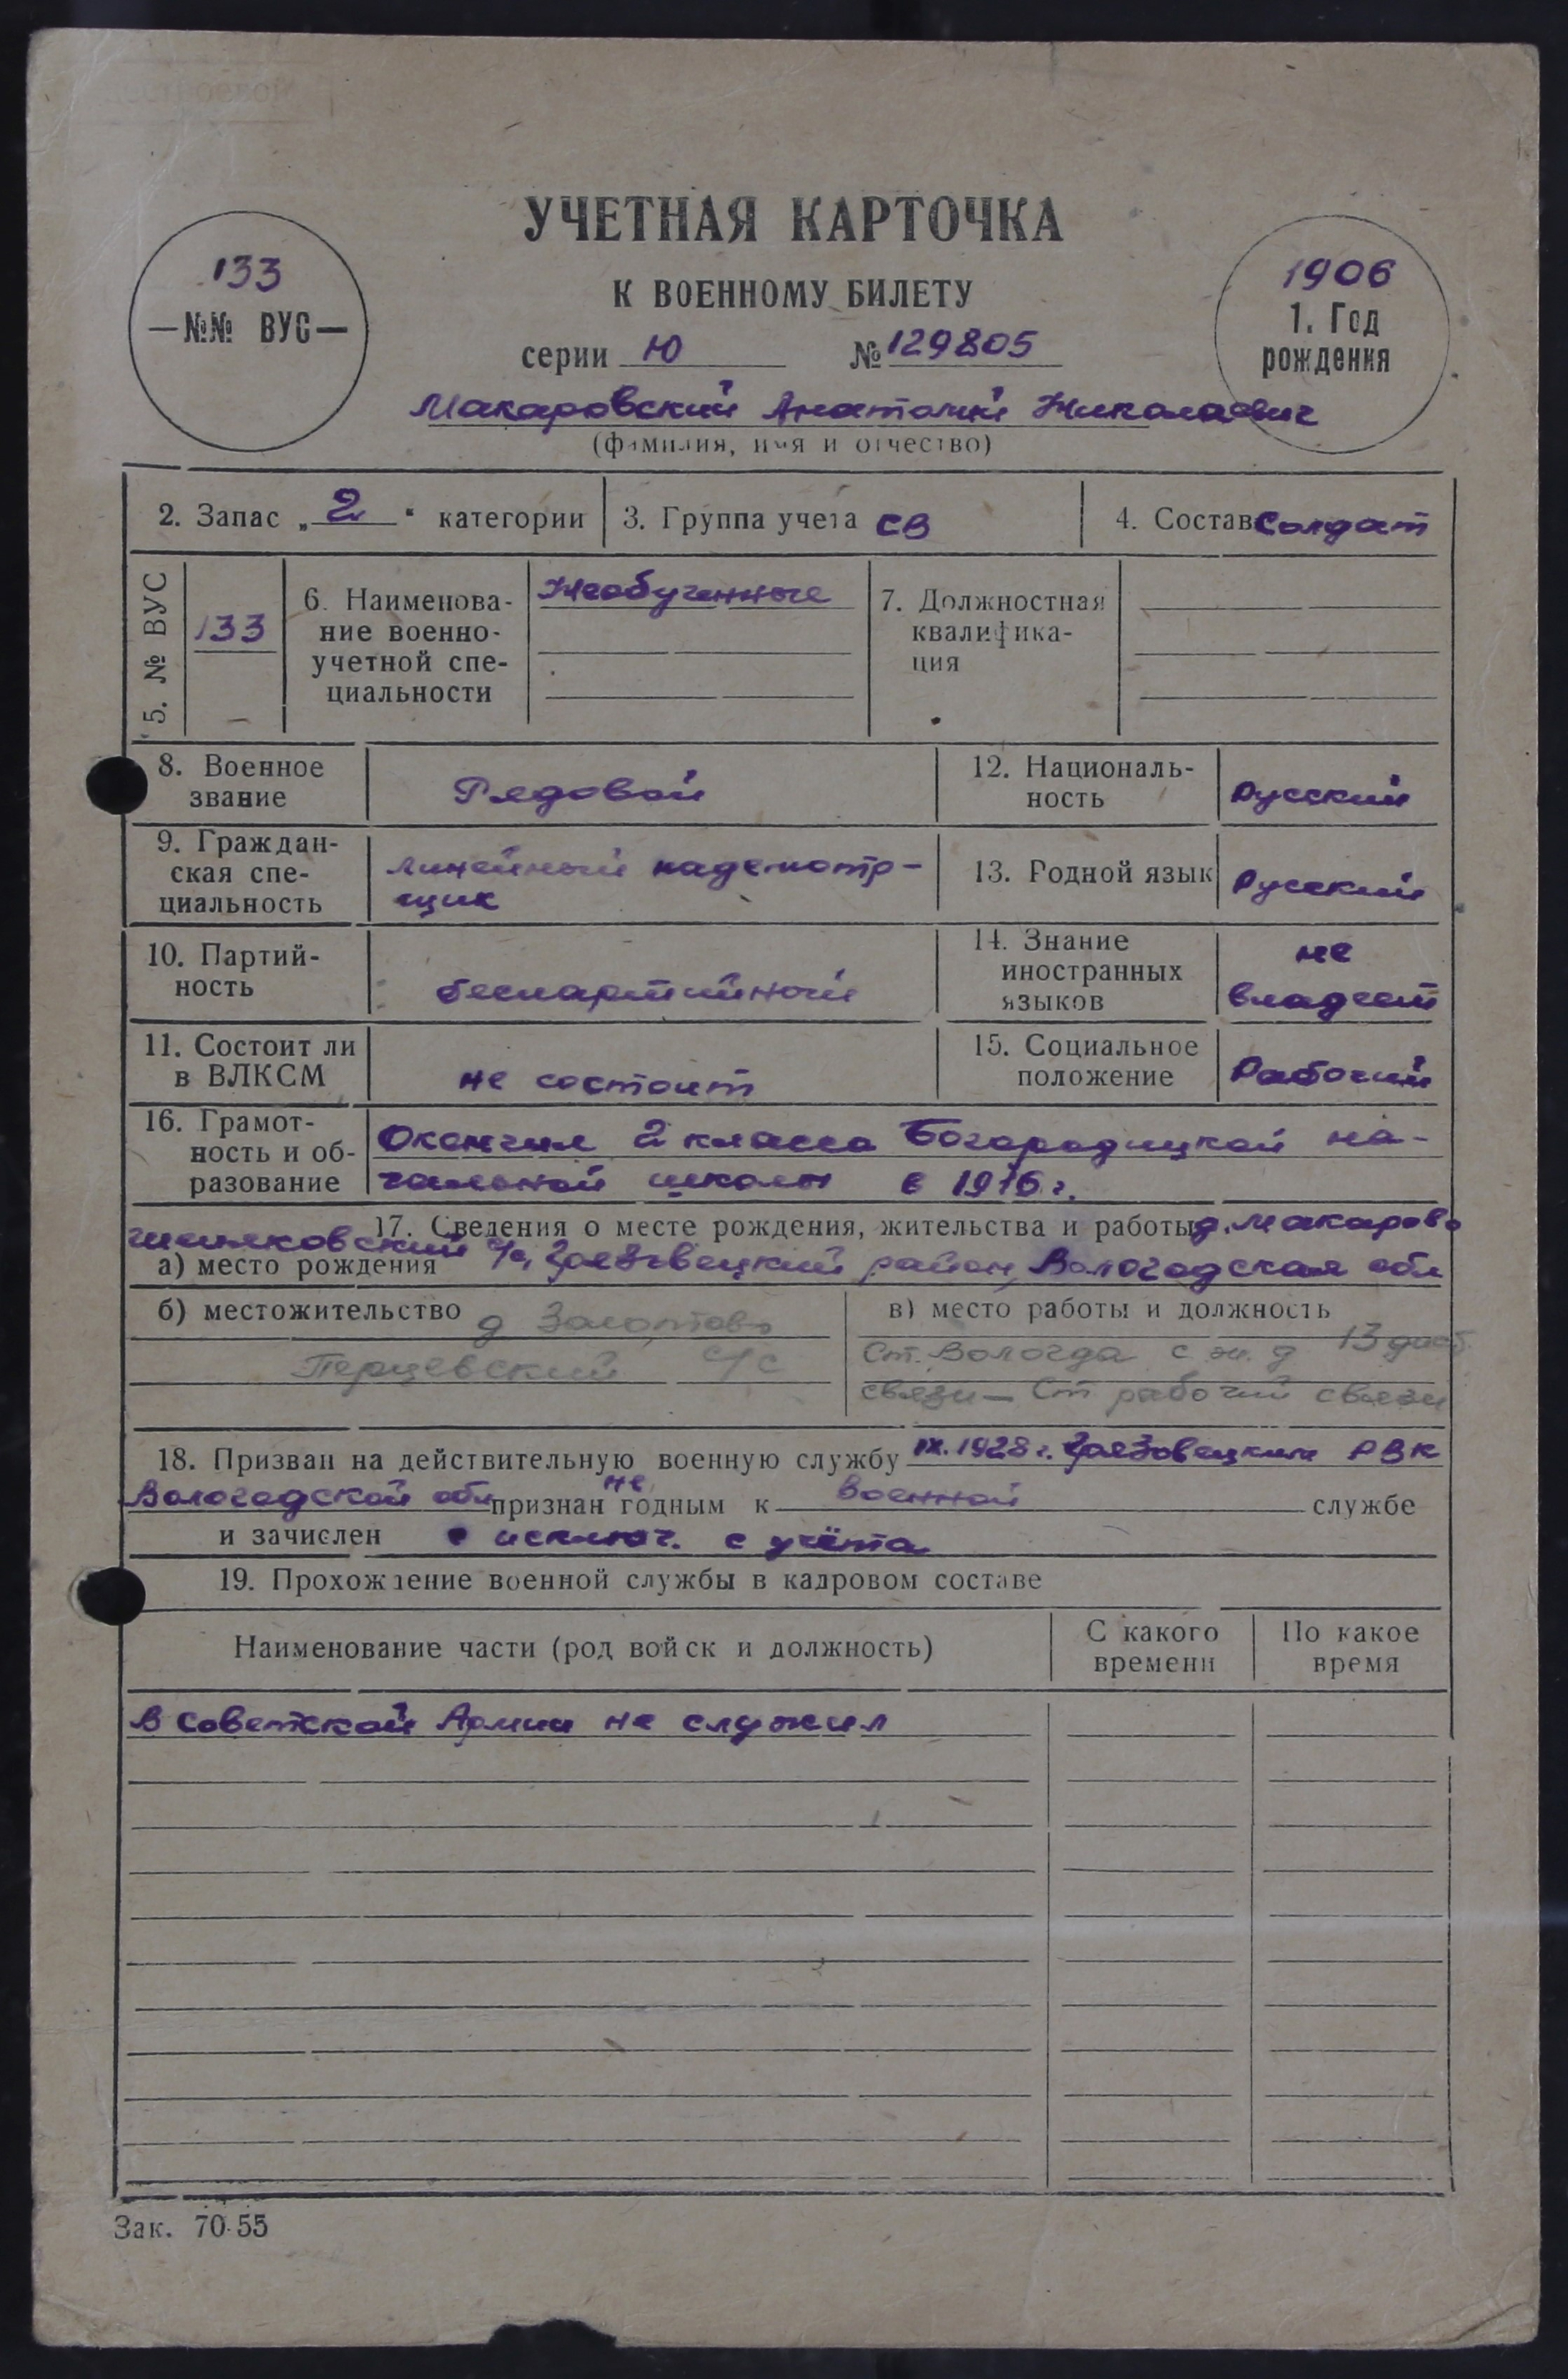 УЧЕТНАЯ КАРТОЧКА
К ВОЕННОМУ БИЛЕТУ
серии Ю № 129805
133
—№№ ВУС—
1906
1. Год
рождения
Макаровский Анатолий Николаевич
(фамилия, имя и отчество)
2. Запас „2“ категории
3. Группа учета СВ
4. Состав Солдат
5. № ВУС
133
6. Наименова-
ние военно-
учетной спе-
циальности
Необученные
7. Должностная
квалифика-
ция
8. Военное
звание
Рядовой
12. Националь-
ность
Русский
9. Граждан-
ская спе-
циальность
линейный надсмотр-
щик
13. Родной язык
Русский
10. Партий-
ность
беспартийный
14. Знание
иностранных
языков
не
владеет
11. Состоит ли
в ВЛКСМ
не состоит
15. Социальное
положение
Рабочий
16. Грамот-
ность и об-
разование
Окончил 2 класса Богородицкой на-
чальной школы в 1916 г.
17. Сведения о месте рождения, жительства и работы
д. Макарово
с/с, Грязовецкий район, Вологодская обл
а) место рождения
б) местожительство д Золотово
Перцевский с/с
в) место работы и должность
Ст. Вологда с ж. д 13 дист.
связи — Ст рабочий связи
18. Призван на действительную военную службу IX. 1928 г. Грязовецким РВК
Вологодской обл признан не годным к военной службе
и зачислен исключ. с учёта
19. Прохождение военной службы в кадровом составе
Наименование части (род войск и должность)
С какого
времени
По какое
время
В Советской Армии не служил
Зак. 70-55